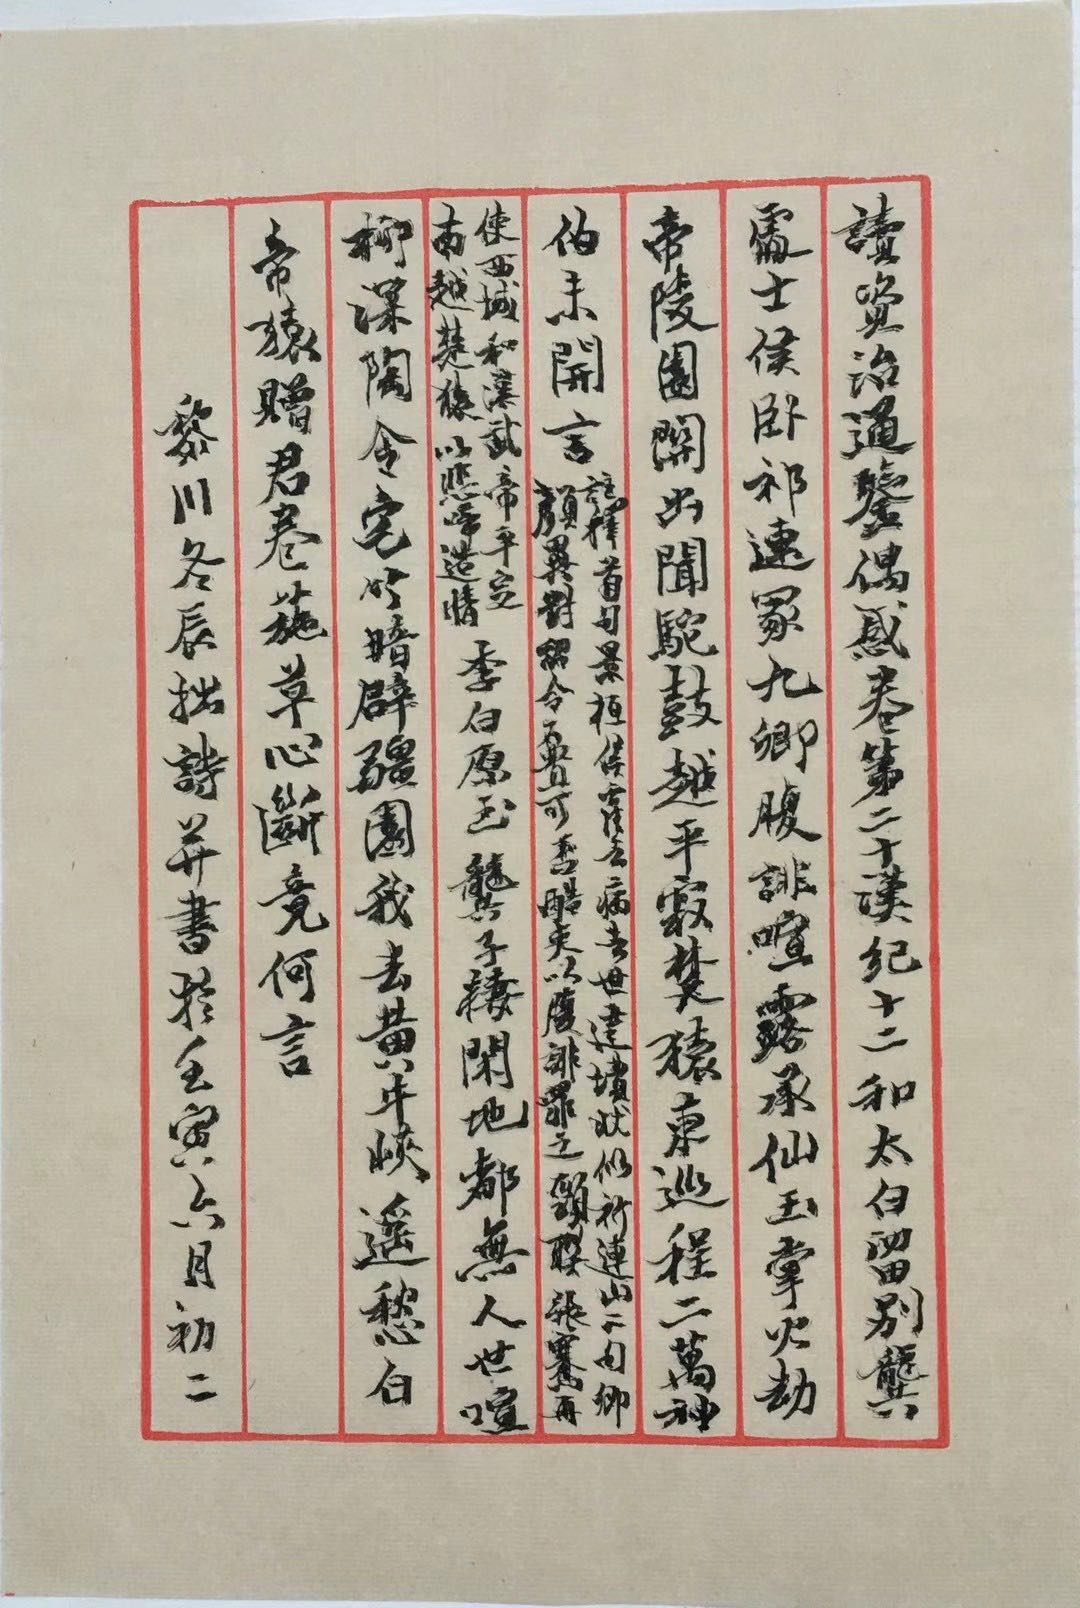 讀資治通鑒偶感卷第二十漢紀十二和太白留別龔
處士侯卧祁連冢九卿腹誹喧露承仙玉掌火劫
帝陵園關出聞駝鼓越平寂楚猿東巡程二萬神
伯未開言
註釋首句景桓侯霍去病去世建墳狀似祈連山二句卿
顏異對詔令置可否酷吏以腹誹罪之頸聯張騫再
使西域和漢武帝平定
南越楚猿以悲啼造情
李白原玉龔子棲閑地都無人世喧
柳深陶令宅竹暗辟疆園我去黃牛峽遙愁白
帝猿贈君卷葹草心斷竟何言
黎川冬辰拙詩并書於壬寅六月初二